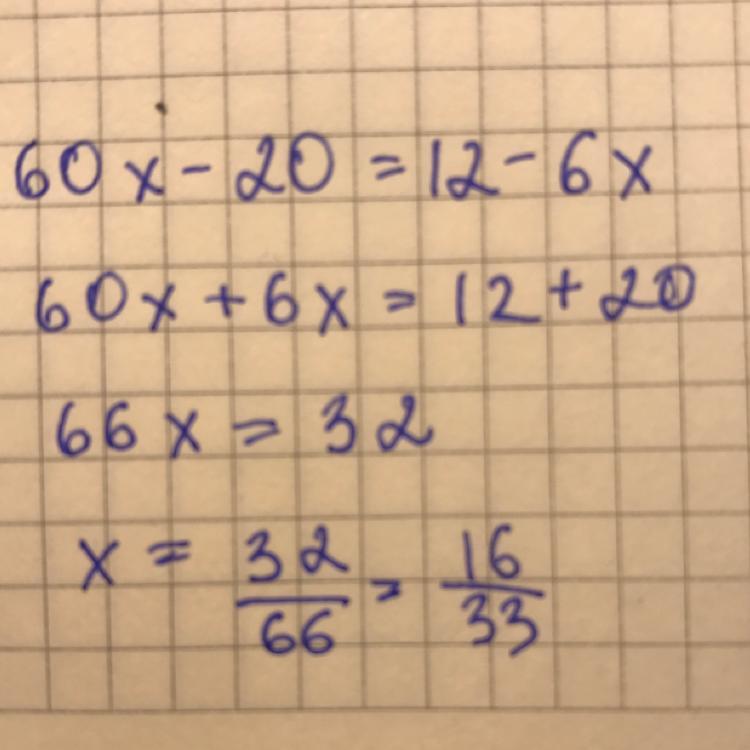 60x - 20 = 12 - 6x
60x + 6x = 12 + 20
66x = 32
x = 32/66 = 16/33